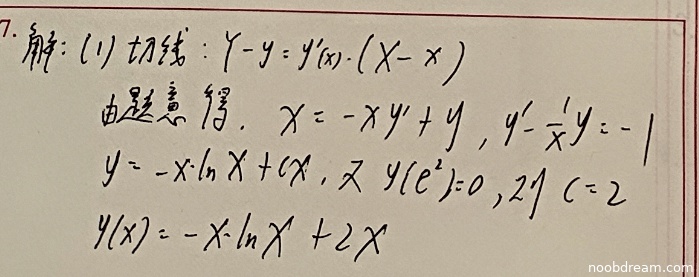 7.解:(1)切线:Y-y=y'(x)·(X-x)
由题意得. x=-xy'+y, y'-\frac{1}{x}y=-1
y=-x·lnx+Cx, 又 y(e²)=0, 则 C=2
y(x)=-x·lnx+2x
noobdream.com